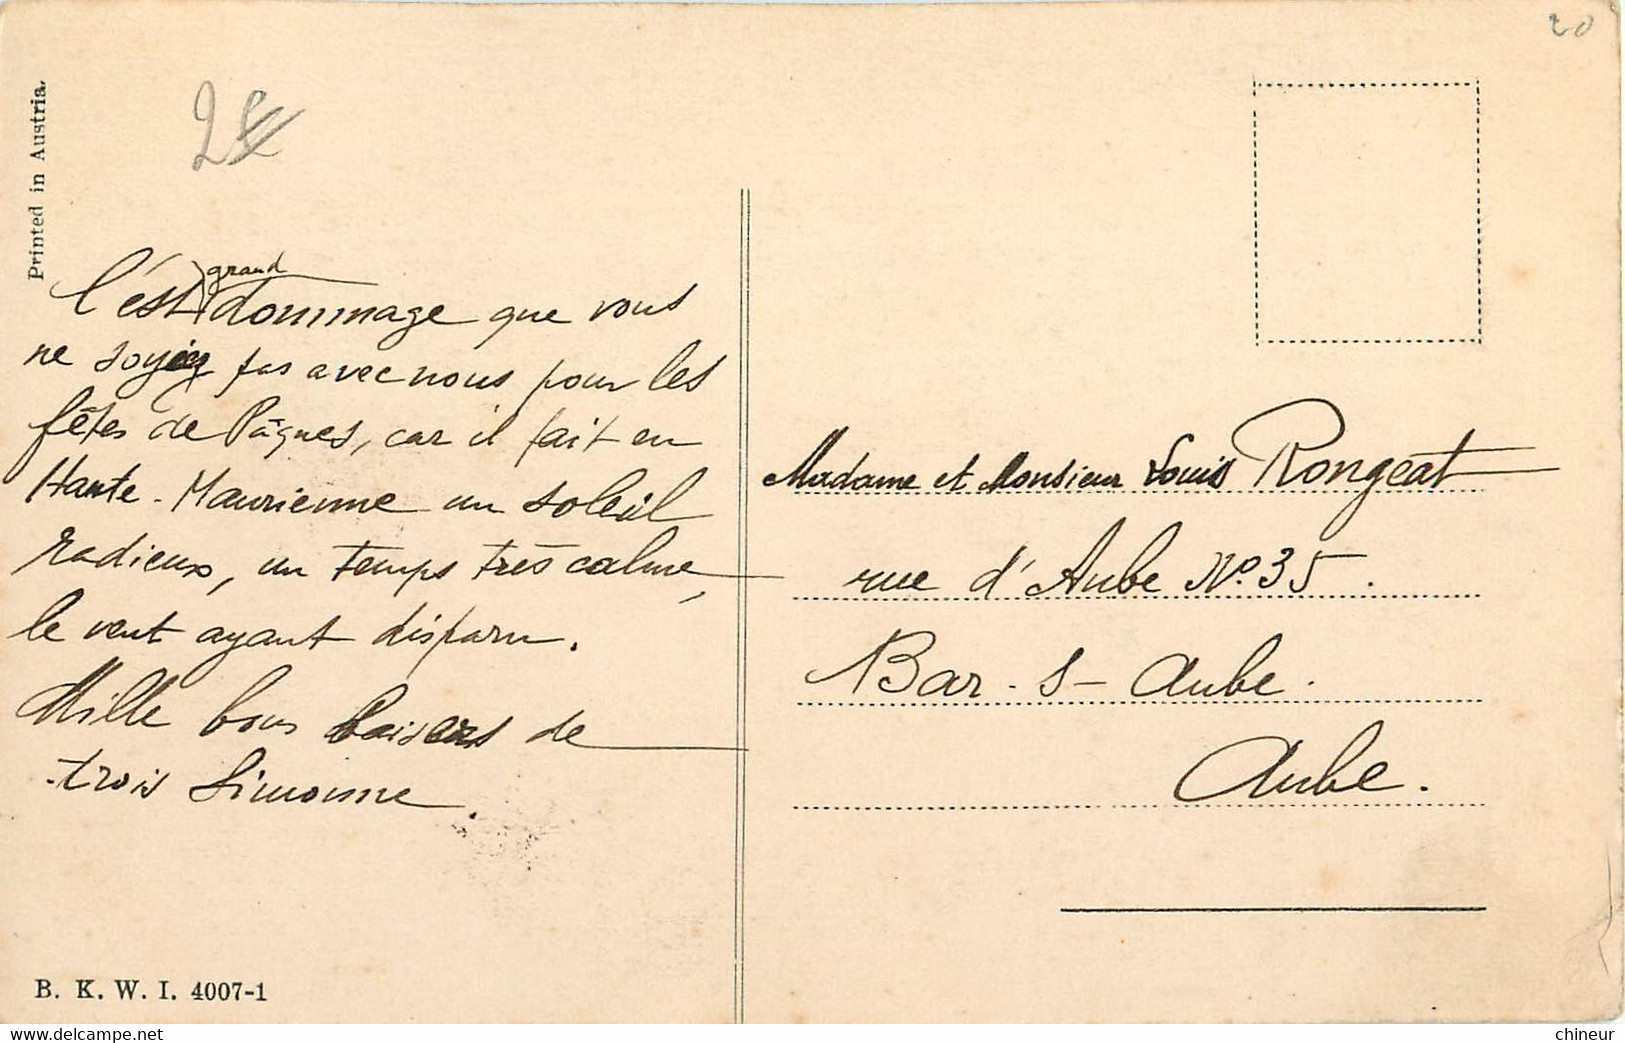 20
Printed in Austria.
C'est grand dommage que vous
ne soyez pas avec nous pour les
fêtes de Pâques, car il fait en
Haute-Maurienne un soleil
radieux, un temps très calme,
le vent ayant disparu.
Mille bons baisers de
trois Simonne.
Madame et Monsieur Louis Rongeat
rue d'Aube No. 35.
Bar-s-Aube.
Aube.
B. K. W. I. 4007-1
https://www.delcampe.net
chineur